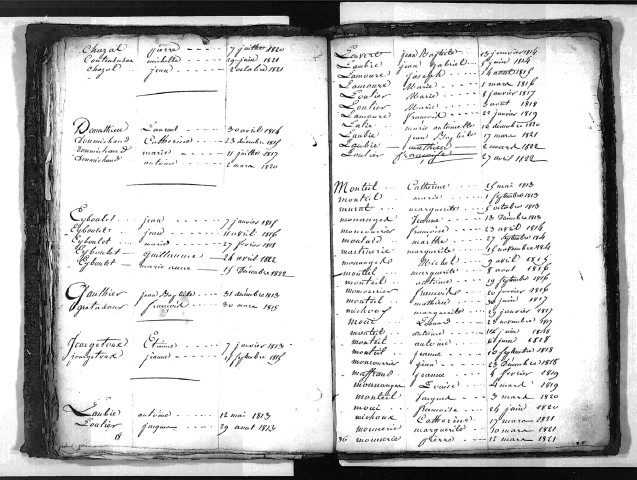 Chazal pierre 7 juillet 1820
michelle 29 juin 1821
chazal jean 2 octobre 1821
Demathieu Laurent 30 avril 1816
Doumichaud Catherine 23 décembre 1815
Doumichaud marie 11 juillet 1817
Doumichaud antoine 2 mars 1820
Eyboulet jean 7 janvier 1815
Eyboulet jean 11 avril 1816
Eyboulet marie 27 février 1818
Eyboulet guillaume 24 avril 1822
Eyboulet marie 15 Décembre 1822
Gauthier jean Baptiste 31 décembre 1813
françois 30 mars 1815
Jeorgetoux Etienne 7 janvier 1813
jeorgetoux jeanne septembre 1815
Laubie antoine 12 mai 1813
Loulier jacques 29 août 1813
18
Louvert jean Baptiste 13 janvier 1814
Laubie jean Gabriel juin 1814
Lamoure joseph 14 août 1815
Lamoure Marie 1 mars 1816
Loulier Marie 8 janvier 1817
Loulier Marie 3 août 1818
Lamoure françois 22 janvier 1819
marie antoinette 16 décembre 1820
Laubie jean Baptiste 17 mars 1821
Laubie mathieu 2 mars 1822
Loulier françoise 27 avril 1822
Monteil Cathérine 25 mai 1813
monteil marie 1 septembre 1813
murat marguerite 5 octobre 1813
monanges Jeanne 13 Décembre 1813
moncourrier françoise 23 avril 1814
marthe 27 septembre 1814
marguerite 15 novembre 1814
monanges Michel 9 avril 1815
monteil marguerite 8 août 1816
monteil antoine 19 septembre 1816
moncourrier françois 20 janvier 1816
monteil mathieu 30 juin 1817
michoux marguerite 29 janvier 1817
Moui Léonard 23 novembre 1817
monteil antoine 14 juin 1818
monteil antoine juin 1818
monteil jeanne 10 septembre 1818
moncourrier jean 23 décembre 1818
maffrand jeanne 4 février 1819
monanges Louise 4 mars 1819
monteil jacques 3 mars 1820
moui françoise 26 juin 1820
michoux Catherine 17 mars 1821
monnerie marguerite 10 mars 1821
36 monnerie pierre 12 mars 1821